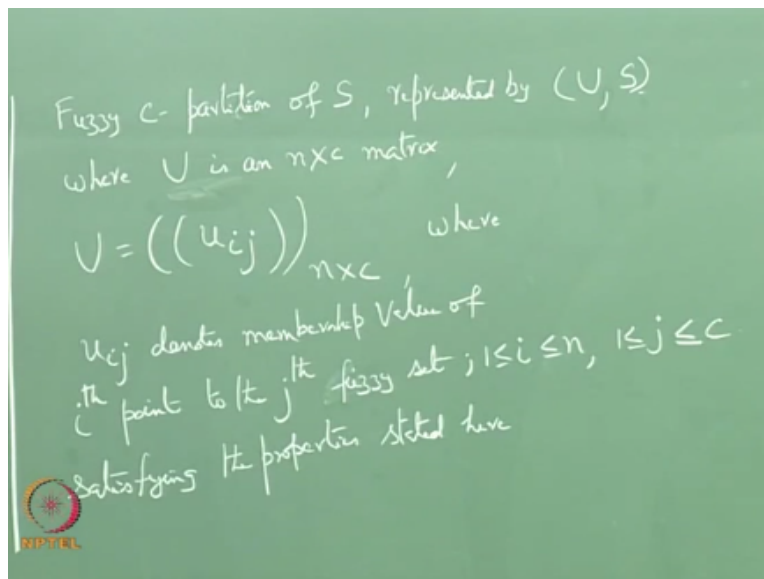 Fuzzy C- partition of S, represented by (U, S)
where U is an n×c matrix,
U = ((u_ij))_n×c, where
u_ij denotes membership value of
i^th point to the j^th fuzzy set ; 1≤i≤n, 1≤j≤c
satisfying the properties stated here
NPTEL